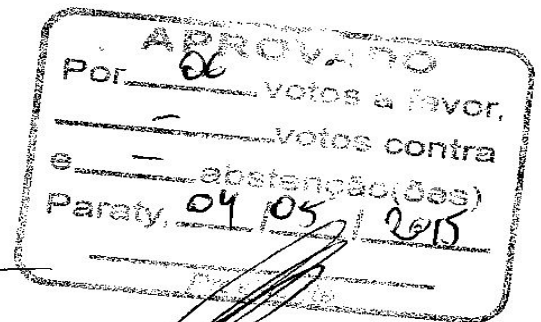 APROVADO
Por 06 votos a favor,
— votos contra
e — abstenção(ões)
Paraty, 04 / 05 / 2015